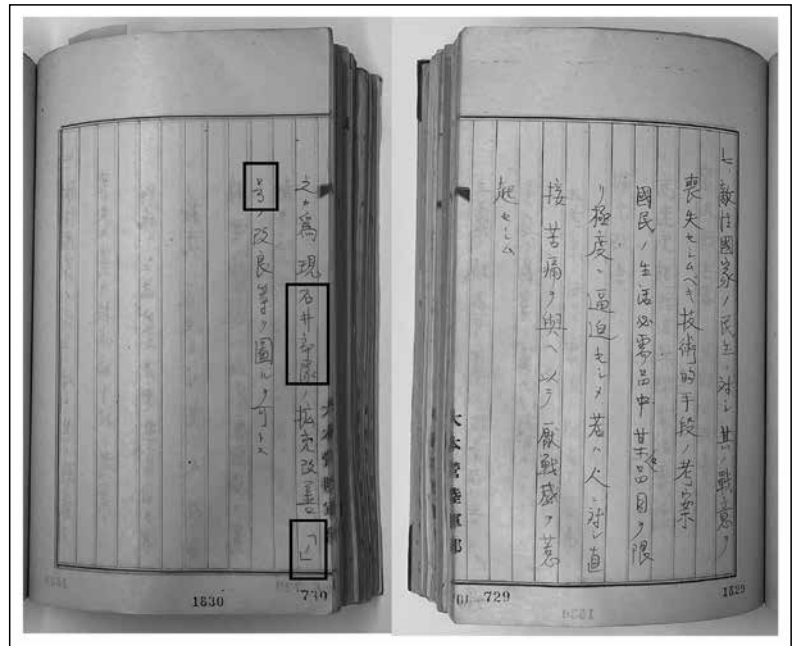 七、敵性國家ノ民生ニ対シ其ノ戰意ヲ
喪失セシムベキ技術的手段ノ考案
國民ノ生活必需品中某品目ヲ限
リ極度ニ逼迫セシメ若ハ人ニ対シ直
接苦痛ヲ與ヘ以テ厭戰感ヲ惹
起セシム
大本營陸軍部
729
1529
之カ爲現石井部隊ノ拡充改善「し」
号ノ改良等ヲ圖ルヲ可トス
1530
730